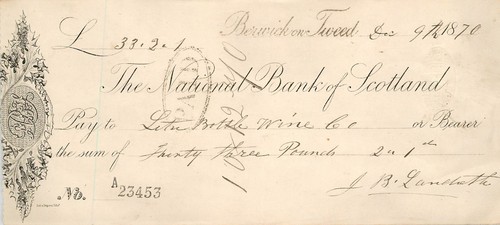 £ 33.2.1 Berwick on Tweed Dec 9th 1870
The National Bank of Scotland
PAID
Pay to Bottle Wine Co or Bearer
the sum of Thirty Three Pounds 2 1d
No. A 23453
J B